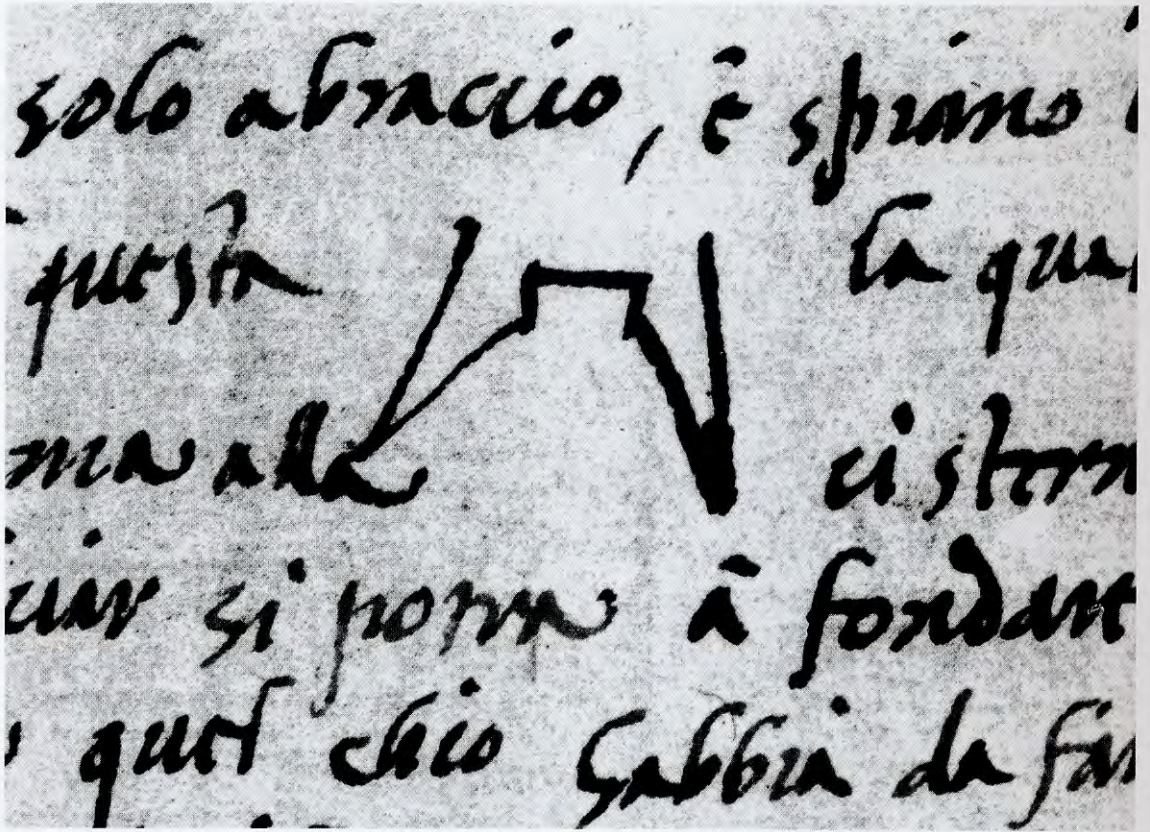 solo abraccio, è spiano
questa la qua
ma alla cistern
ciar si porra à fondare
quel chio habbia da far